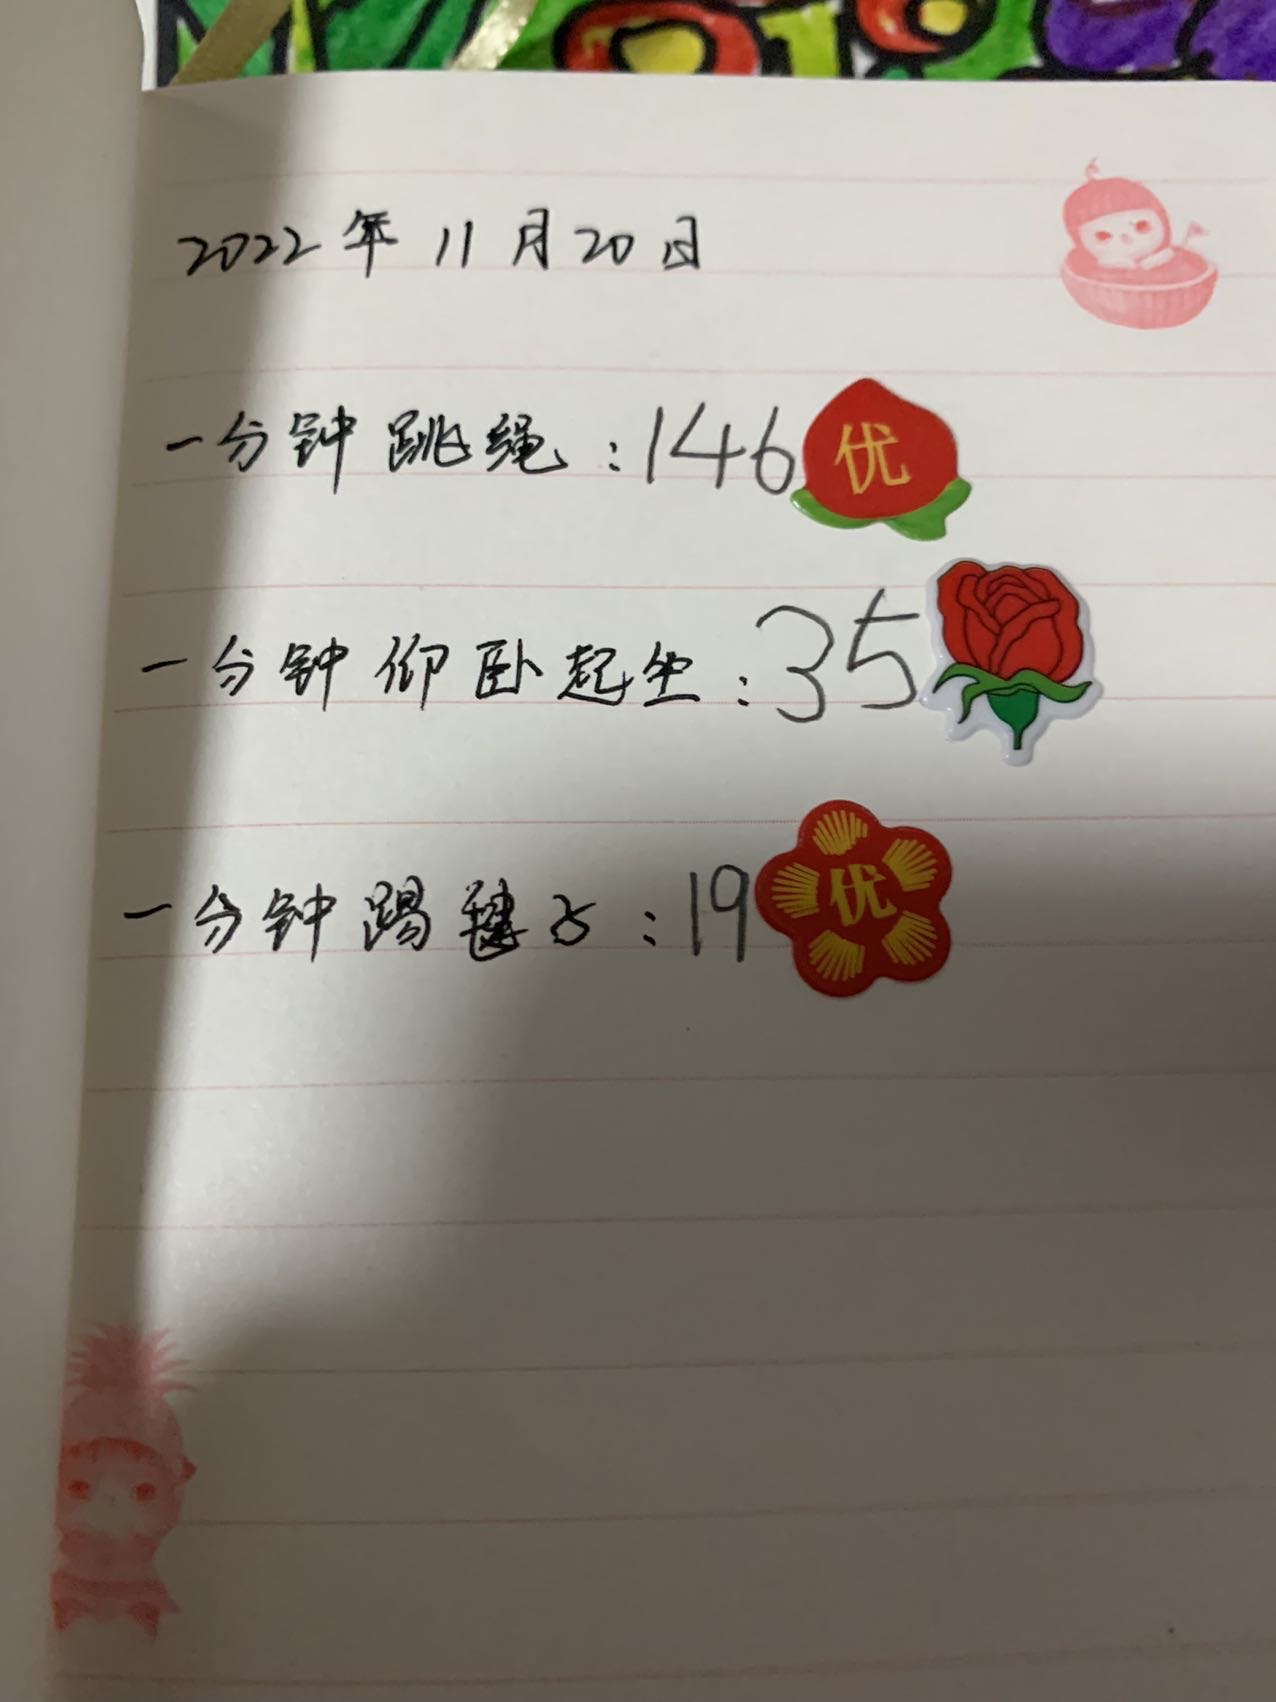 2022年11月20日
一分钟跳绳：146 优
一分钟仰卧起坐：35
一分钟踢毽子：19 优